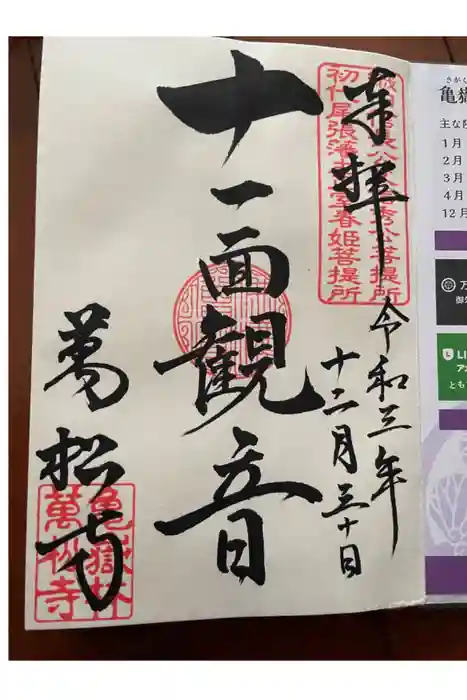 奉拝
令和三年
十二月三十日
十一面観音
萬松寺
初代尾張藩主正室春姫菩提所
亀嶽林
萬松寺
さがく
亀嶽
主な
1月
2月
3月
4月
12月
万
御
LI
アカ
とも